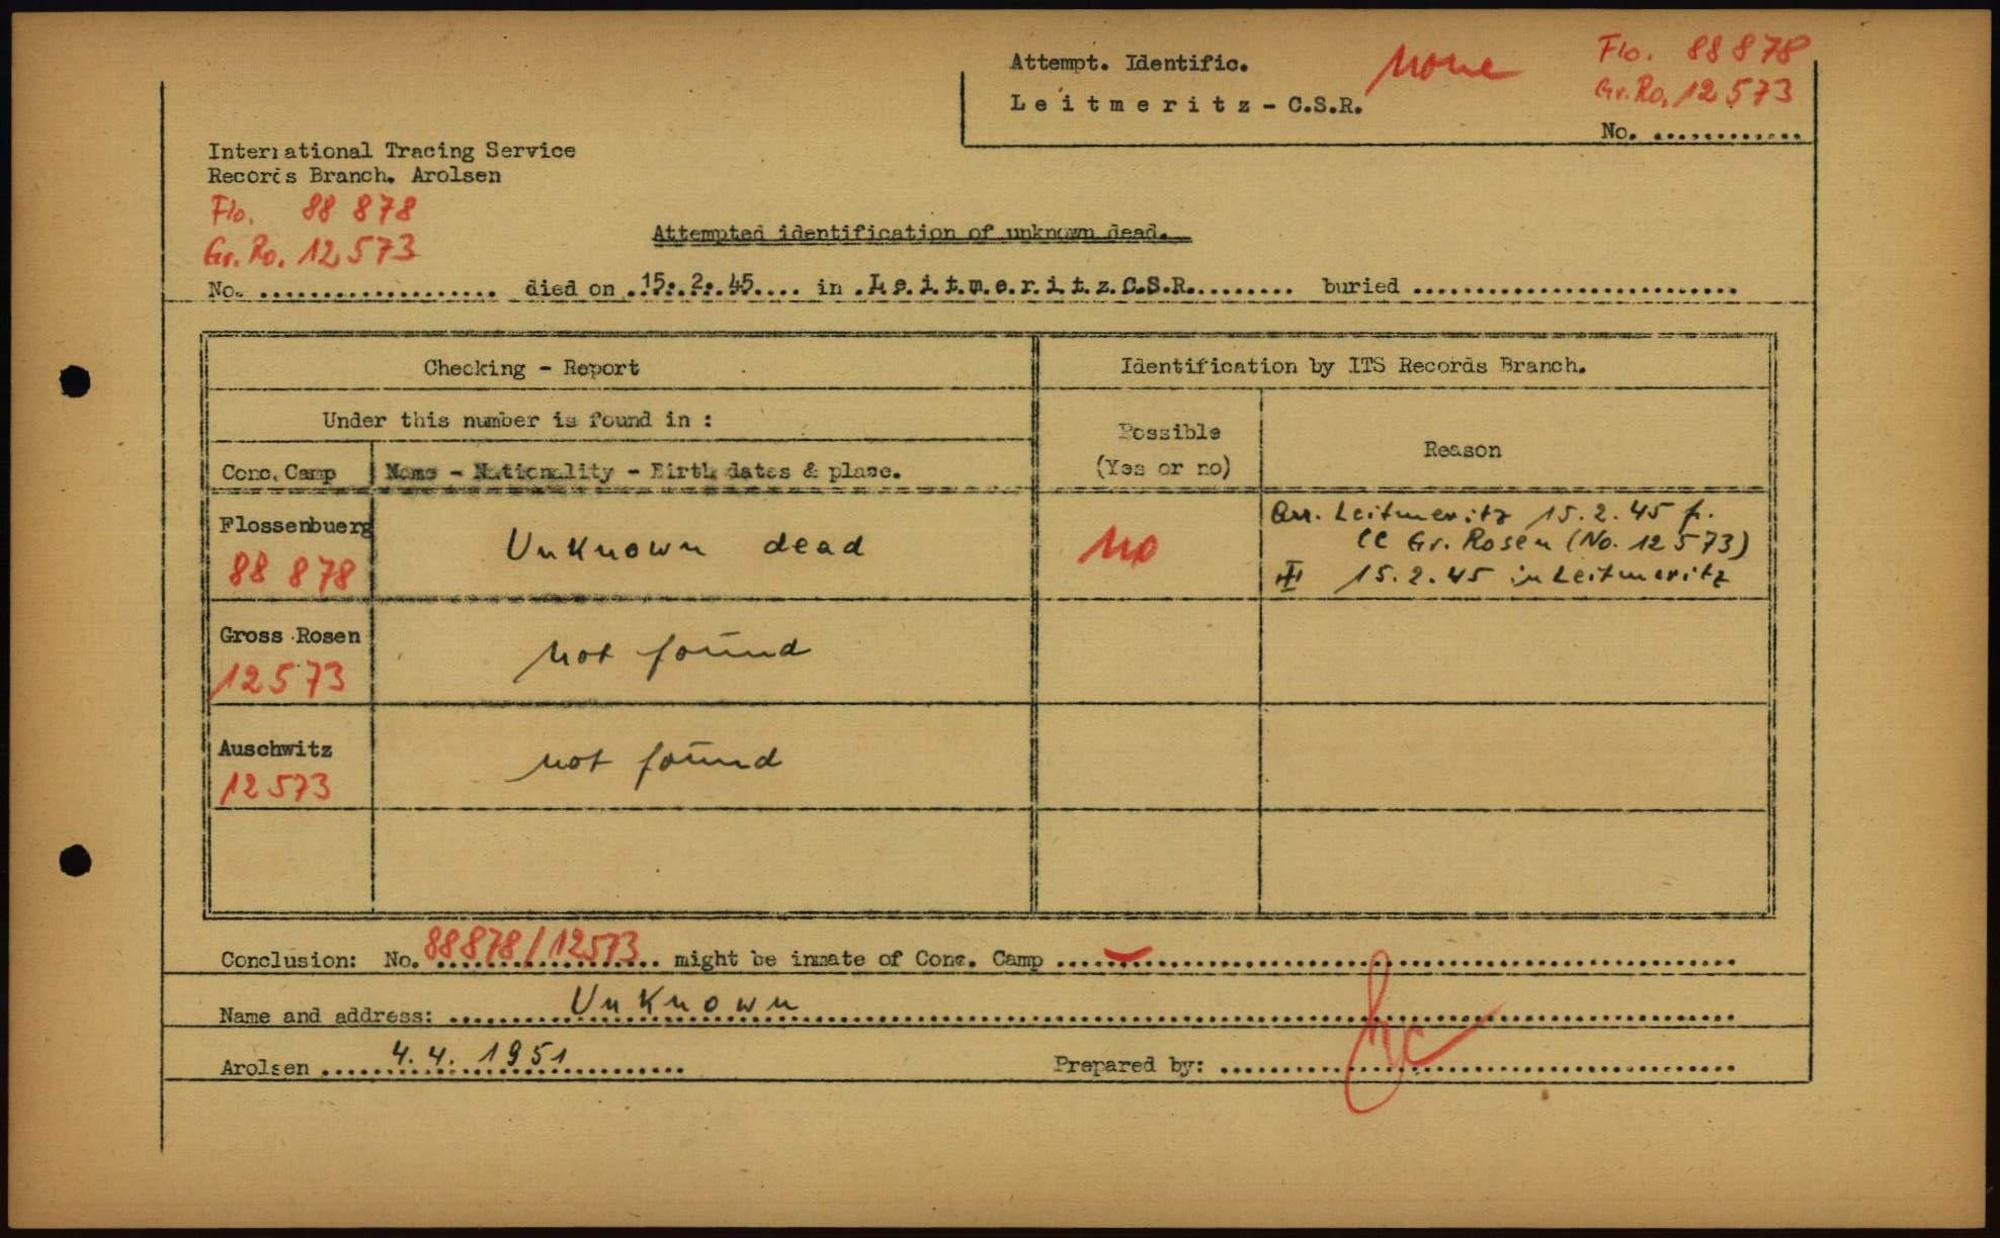 Attempt. Identific. none Flo. 88 878
Leitmeritz - C.S.R. Gr. Ro. 12 573
No. .............
International Tracing Service
Records Branch. Arolsen
Flo. 88 878
Gr. Ro. 12 573
Attempted identification of unknown dead.
No. ................... died on ..15..2..45.... in .Leitmeritz.C.S.R......... buried ..........................
Checking - Report Identification by ITS Records Branch.
Under this number is found in :
Conc. Camp Name - Nationality - Birth dates & place. Possible (Yes or no) Reason
Flossenbuerg Unknown dead no Arr. Leitmeritz 15.2.45 f.
88 878 CC Gr. Rosen (No. 12 573)
15.2.45 in Leitmeritz
Gross Rosen not found
12573
Auschwitz not found
12573
Conclusion: No. 88878/12573 might be inmate of Conc. Camp ..........
Name and address: Unknown
Arolsen 4.4.1951 Prepared by: ..........